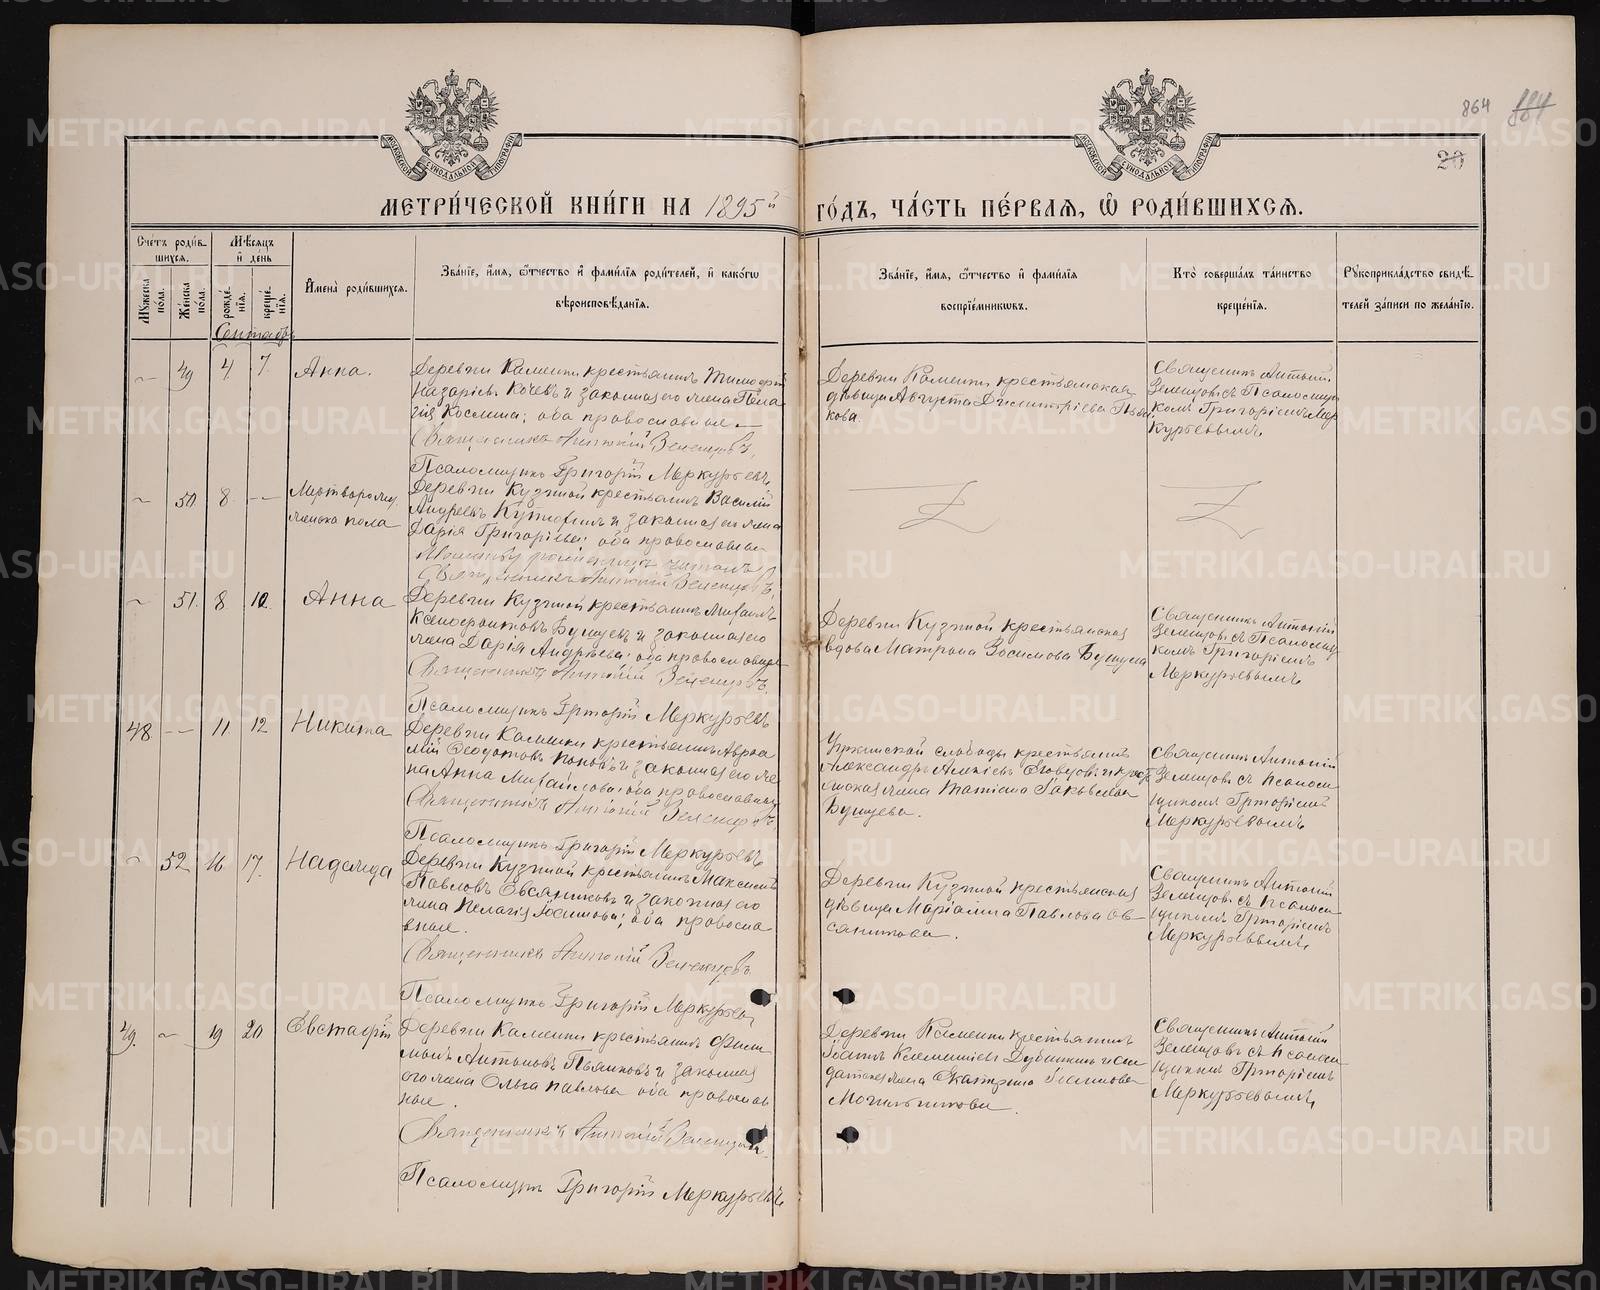 864 884
20
МЕТРИ́ЧЕСКОЙ КНИ́ГИ НА 1895й ГО́ДЪ, ЧА́СТЬ ПЕ́РВАЯ, Ѡ РОДИ́ВШИХСѦ.
Счетъ роди́в-
шихся.
Мѣсяцъ
и день
Мꙋжеска пола.
Женска пола.
рожде́нїѧ.
креще́нїѧ.
Имена̀ роди́вшихсѧ.
Зва́нїе, и́мѧ, ѿчество и фами́лїѧ роди́телей, и како́гѡ
вѣроисповѣ́данїѧ.
Зва́нїе, и́мѧ, ѿчество и фами́лїѧ
воспрїе́мникѡвъ.
Кто̀ соверша́лъ та́инство
креще́нїѧ.
Рꙋкоприкла́дство свидѣ́-
телей за́писи по жела́нїю.
Сентябрь
49 4 7. Анна.
Деревни Каменки крестьянинъ Тимофей
Назаріевъ Кочевъ и законная его жена Пела
гія Космина; оба православные.
Священникъ Антоній Зеленцовъ.
Псаломщикъ Григорій Меркурьевъ
Деревни Каменки крестьянская
дѣвица Августа Димитріева
кова.
Священникъ Антоній
Зеленцовъ съ Псаломщи
комъ Григоріемъ Мер
курьевымъ.
50 8 -- Мертворожд.
женска пола
Деревни Кузиной крестьянинъ Василій
Андреевъ и законная его жена
Дарія Григорьева; оба православные
Священникъ Антоній Зеленцовъ
51. 8 10. Анна
Деревни Кузиной крестьянинъ Михаилъ
Ксенофонтовъ Бушуевъ и законная его
жена Дарія Андреева; оба православные
Священникъ Антоній Зеленцовъ.
Псаломщикъ Григорій Меркурьевъ
Деревни Кузиной крестьянская
вдова Матрона Зосимова Бушуева
Священникъ Антоній
Зеленцовъ съ Псаломщи
комъ Григоріемъ
Меркурьевымъ
48 -- 11 12 Никита
Деревни Каменки крестьянинъ Авраа
мій Феодотовъ Поповъ и законная его же
на Анна Михайлова; оба православные
Священникъ Антоній Зеленцовъ
Псаломщикъ Григорій Меркурьевъ
слободы крестьянинъ
Александръ Алексіевъ и крест
жена Татіана Іаковлева
Бушуева.
Священникъ Антоній
Зеленцовъ съ Псалом
щикомъ Григоріемъ
Меркурьевымъ
52 16 17. Надежда
Деревни Кузиной крестьянинъ Максимъ
Павловъ Овсянниковъ и законная его
жена Пелагія; оба правосла
вные.
Священникъ Антоній Зеленцовъ
Псаломщикъ Григорій Меркурьевъ
Деревни Кузиной крестьянская
дѣвица Маріамна Павлова Ов
сянникова.
Священникъ Антоній
Зеленцовъ съ Псалом
щикомъ Григоріемъ
Меркурьевымъ
49. 19 20 Евстафій
Деревни Каменки крестьянинъ Фили
монъ Антоновъ Пьянковъ и законная
его жена Ольга Павлова оба православ
ные.
Священникъ Антоній Зеленцовъ
Псаломщикъ Григорій Меркурьевъ
Деревни Каменки крестьянинъ
Іоаннъ Климентіевъ Дубинкинъ и сол
датская жена Екатерина
Могильникова.
Священникъ Антоній
Зеленцовъ съ Псалом
щикомъ Григоріемъ
Меркурьевымъ
METRIKI.GASO-URAL.RU